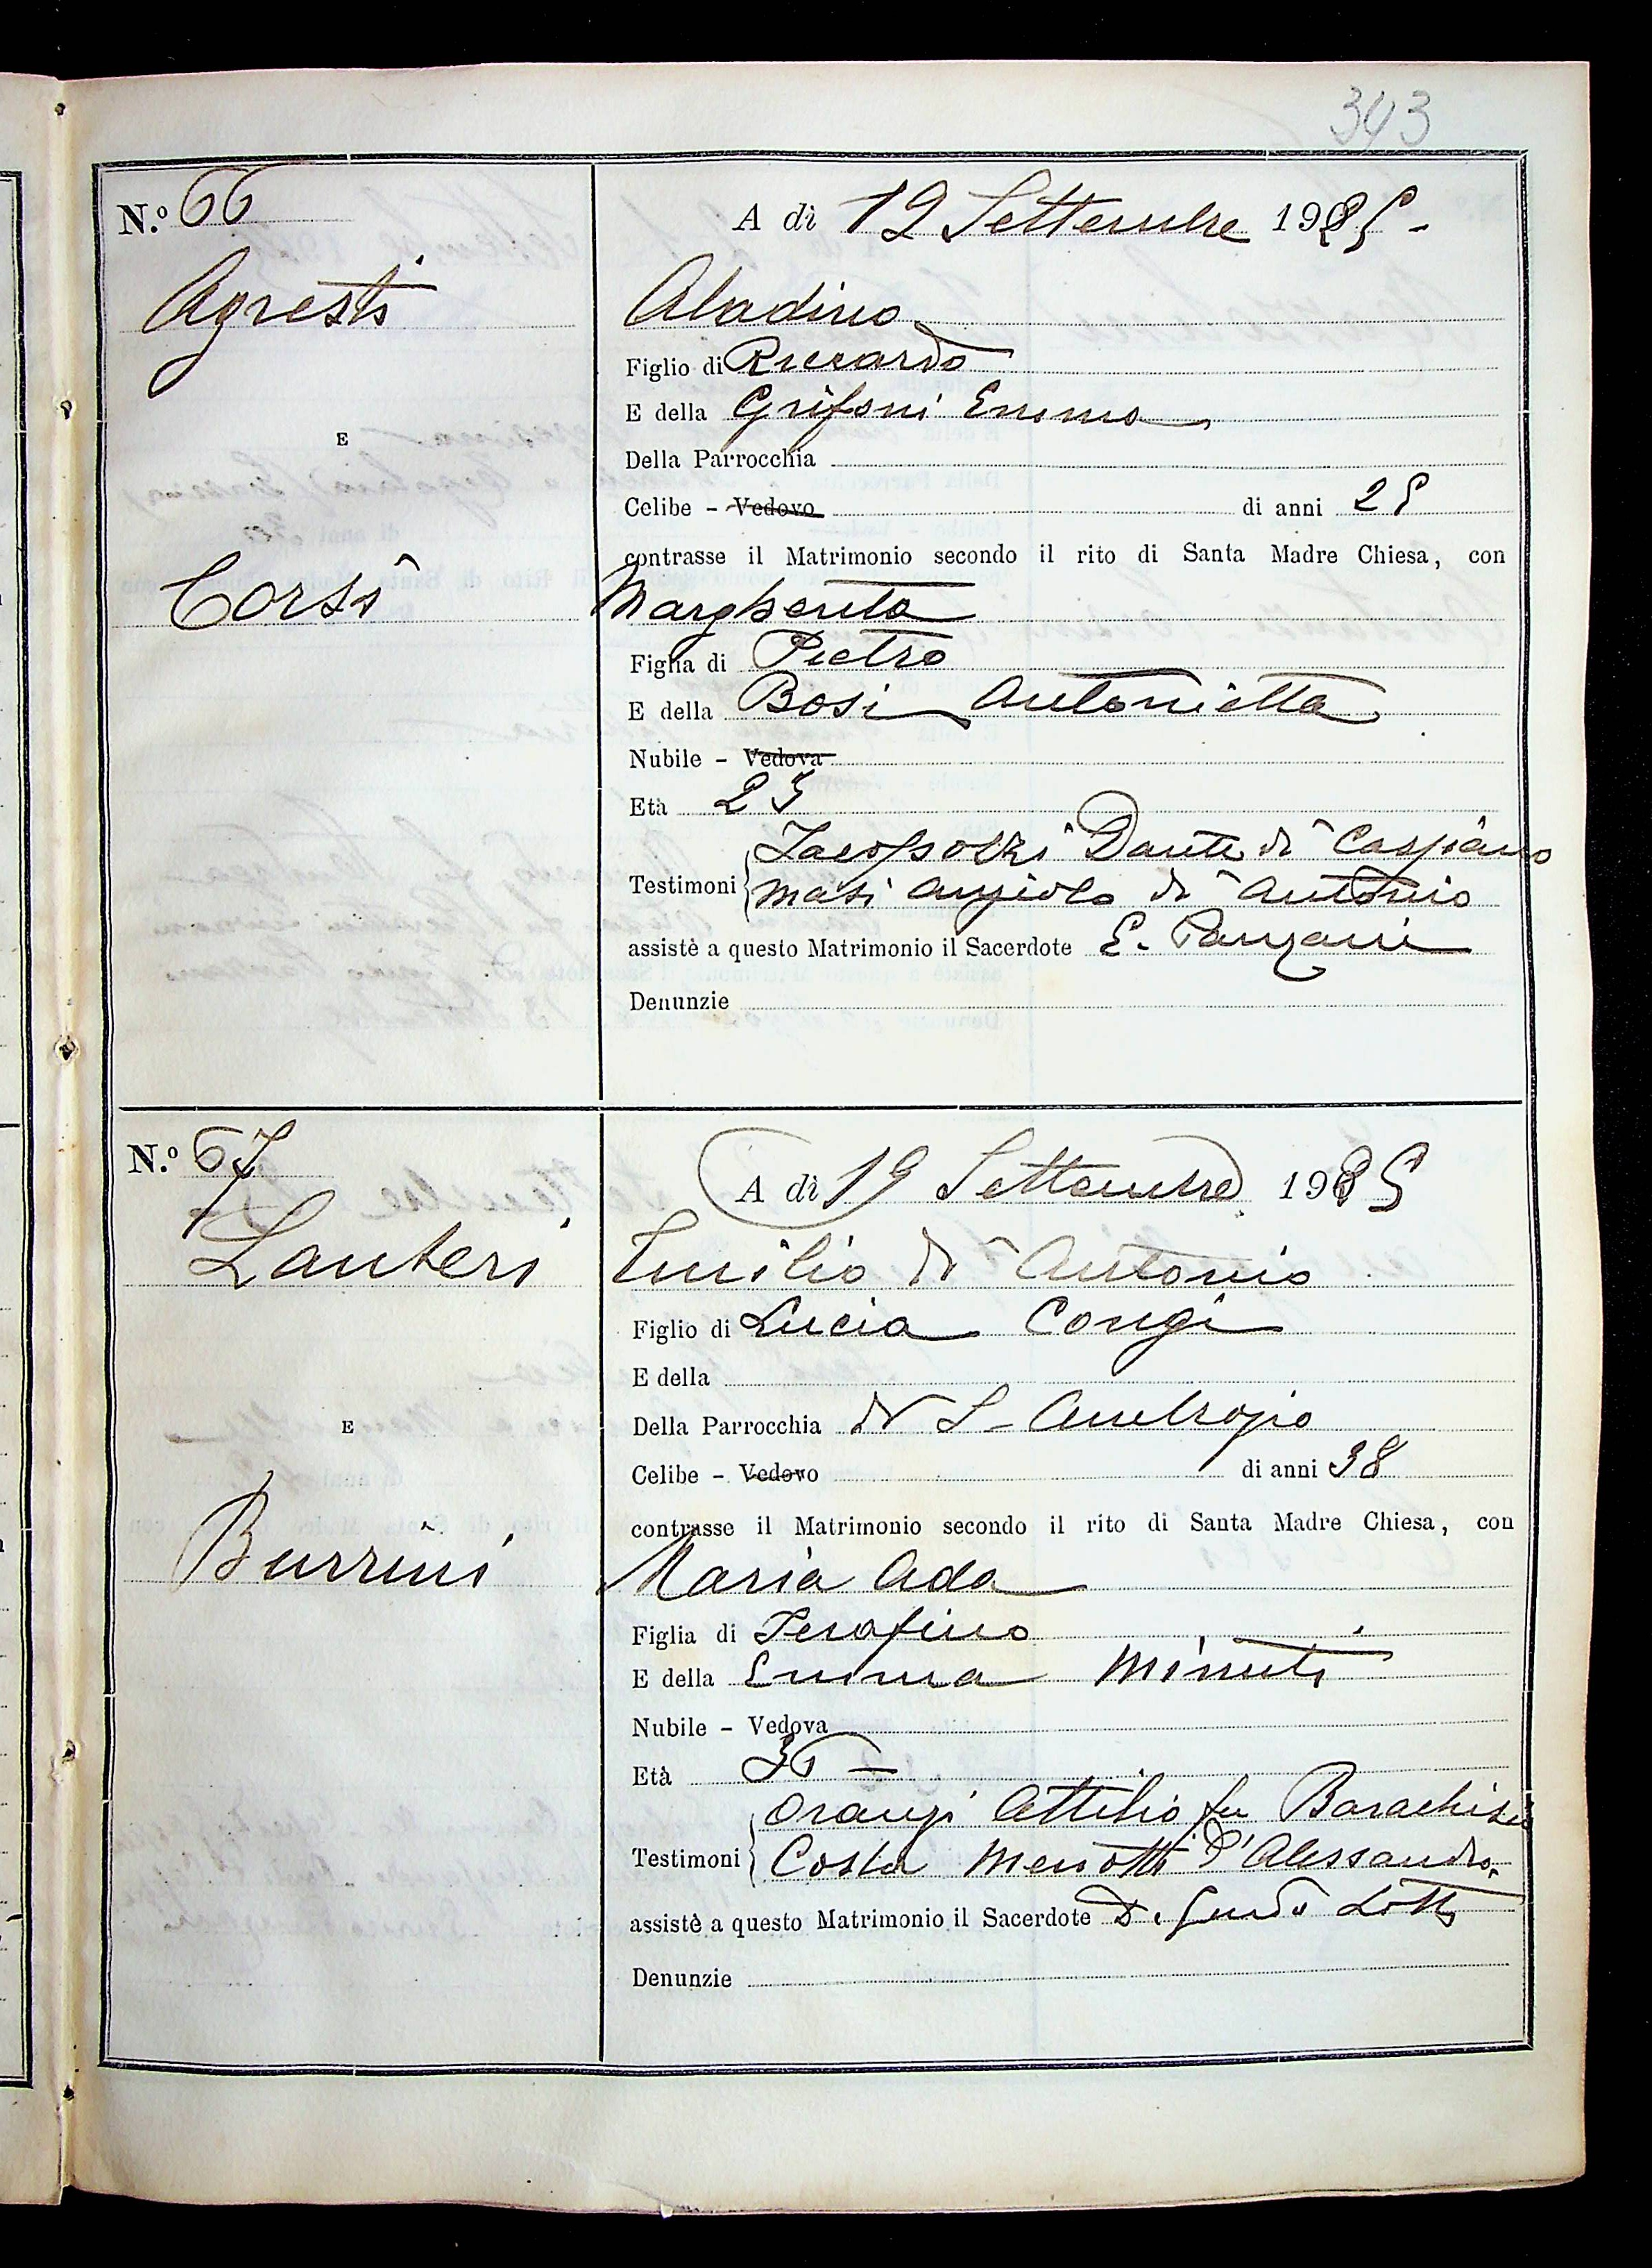 343
N.º 66
A dì 12 Settembre 1925 -
Agresti
Aladino
Figlio di Riccardo
E della Grifoni Emma
E
Della Parrocchia
Celibe - Vedovo di anni 25
contrasse il Matrimonio secondo il rito di Santa Madre Chiesa, con
Corsi
Margherita
Figlia di Pietro
E della Bosi Antonietta
Nubile - Vedova
Età 23
Jacopozzi Dante di Caspiano
Testimoni Masi Angiolo di Antonio
assistè a questo Matrimonio il Sacerdote E. Panzani
Denunzie
N.º 67
A dì 19 Settembre 1925
Lanteri
Emilio di Antonio
Figlio di Lucia Congi
E della
E
Della Parrocchia di S. Ambrogio
Celibe - Vedovo di anni 38
contrasse il Matrimonio secondo il rito di Santa Madre Chiesa, con
Burrini
Maria Ada
Figlia di Serafino
E della Emma Minuti
Nubile - Vedova
Età
Orangi Attilio fu Barachisio
Testimoni Costa Menotti d'Alessandro
assistè a questo Matrimonio il Sacerdote D. Guido Lotti
Denunzie